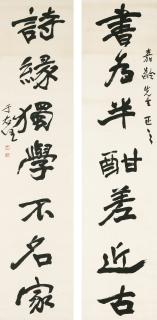 嘉齡先生正之
書為半酣差近古
詩緣獨學不名家
于右任